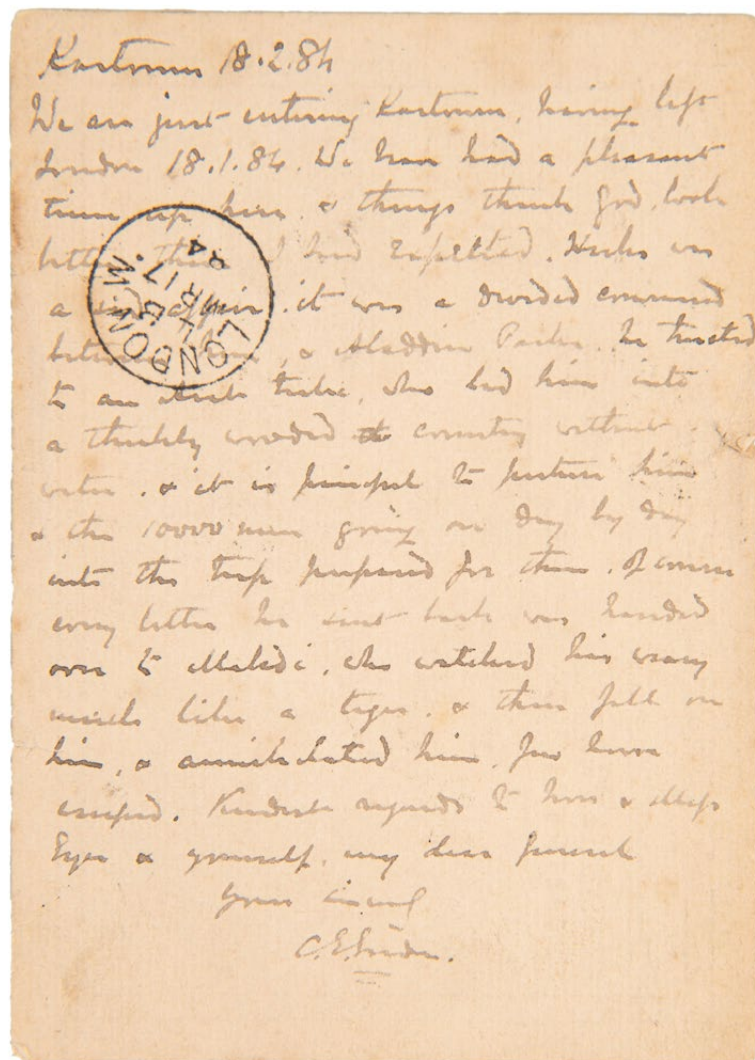 Kartoum 18.2.84
We are just entering Kartoum, having left
London 18.1.84. We have had a pleasant
time up here, & things thank God, look
better than I had expected. Hicks was
a sad affair, it was a divided command
between him, & Aladdin Pasha. he trusted
to an Arab tribe, who led him into
a thickly wooded country without
water, & it is painful to picture him
& the 10000 men going on day by day
into the trap prepared for them. Of course
every letter he sent back was handed
over to Mahdi, who watched his weary
march like a tiger, & then fell on
him, & annihilated him, few have
escaped. Kindest regards to &
& yourself, my dear friend
Yours
C.E.Gordon.
LONDON.W
B
MR17
84